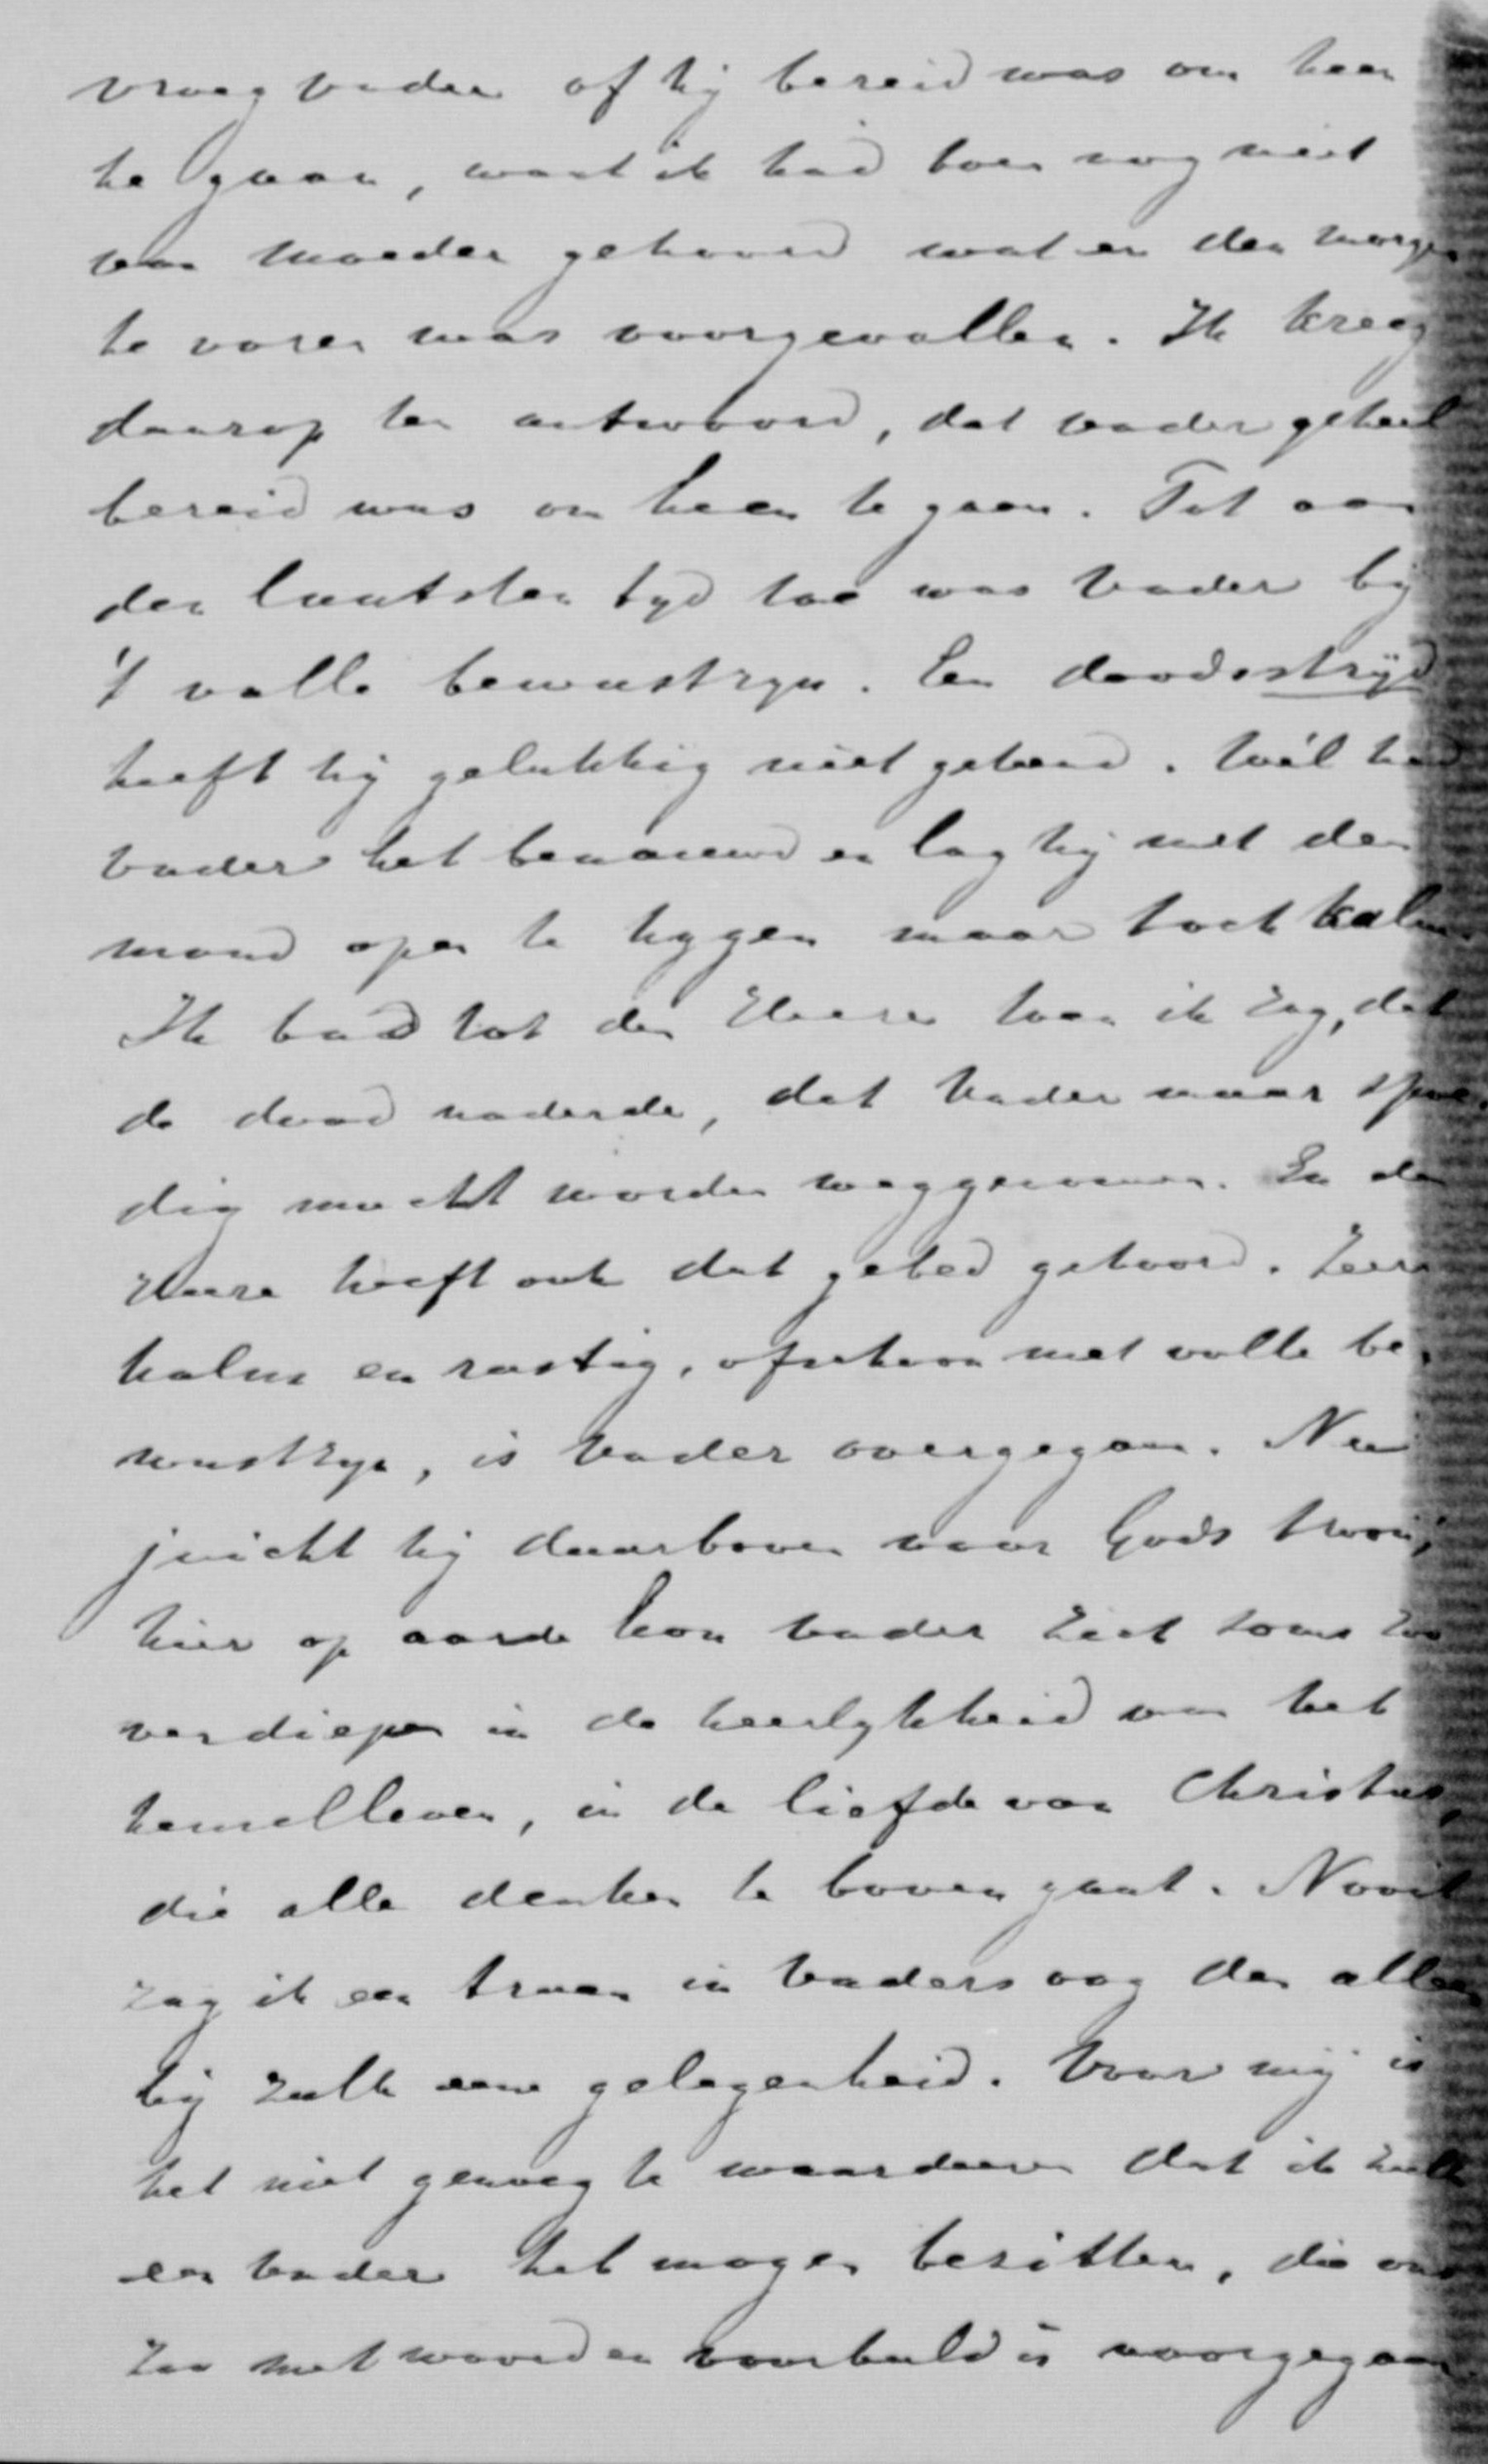 vroeg vader of hij bereid was om heen
te gaan, want ik had toen nog niet
van moeder gehoord wat er den morgen
te voren was voorgevallen. Ik kreeg
daarop ten antwoord, dat vader geheel
bereid was om heen te gaan. Tot aan
den laatsten tyd toe was Vader bij
't volle bewustzyn. Een doodsstrijd
heeft hij gelukkig niet gehad. Wèl had
Vader het benauwd en lag hij met den
mond open te hygen maar toch kalm.
Ik bad tot den Heere toen ik zag, dat
de dood naderde, dat Vader maar spoe-
dig mocht worden weggenomen. En de
Heere heeft ook dat gebed gehoord. Zeer
kalm en rustig, ofschoon met volle be-
wustzyn, is Vader overgegaan. Nu
juicht hij daarboven voor Gods troon;
hier op aarde kon vader zich soms zoo
verdiepen in de heerlykheid van het
hemelleven, in de liefde van Christus,
die alle denken te boven gaat. Nooit
zag ik een traan in Vaders oog dan alleen
bij zulk eene gelegenheid. Voor mij is
het niet genoeg te waardeeren dat ik zulk
een Vader heb mogen bezitten, die ons
zoo met woord en voorbeeld is voorgegaan